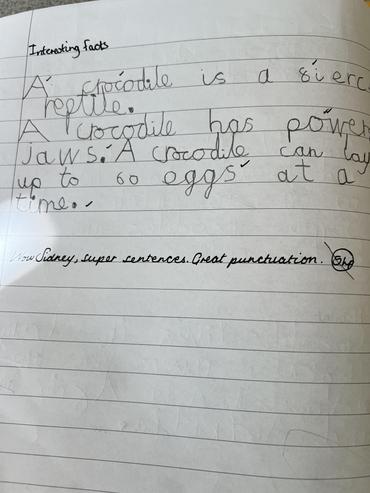 Interesting facts
A crocodile is a sierc
reptile.
A crocodile has power
jaws. A crocodile can lay
up to 60 eggs at a
time.
Wow Sidney, super sentences. Great punctuation.